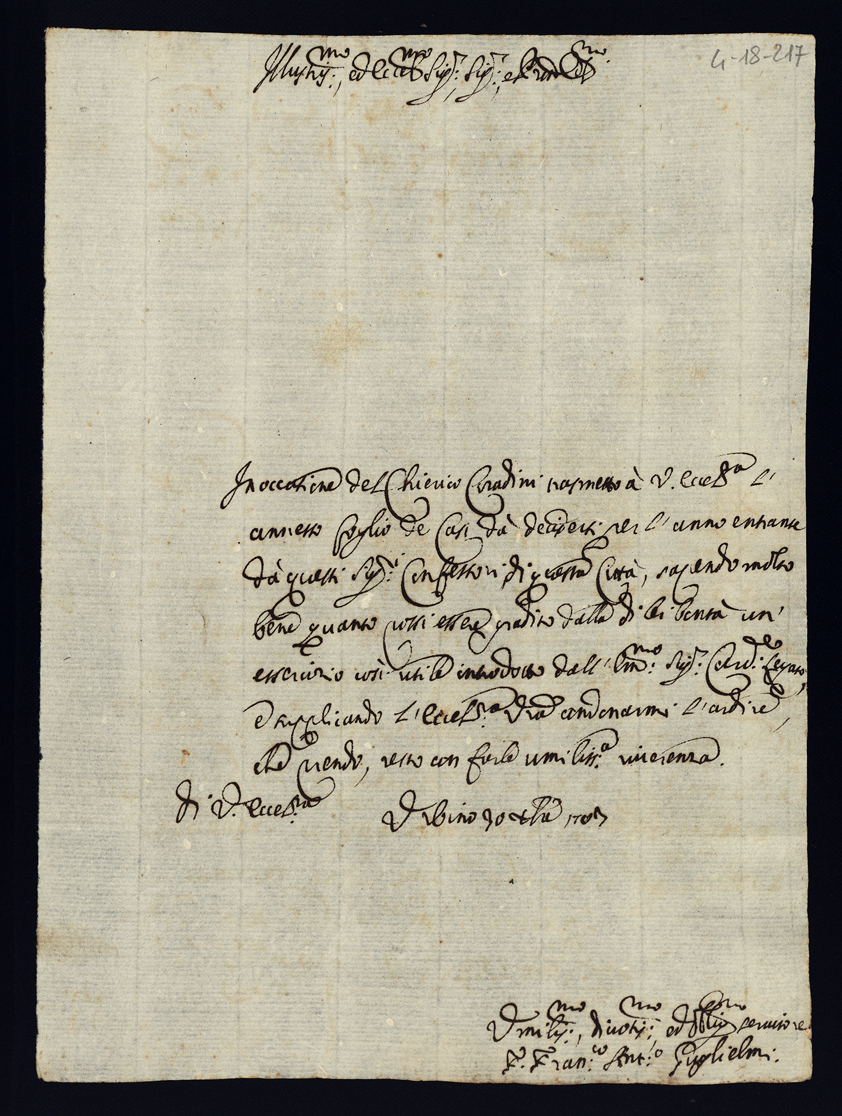 4-18-217
Illustriss:mo, ed Eccell:mo Sig:r Sig:r, e Pron Col:mo
In occasione del Chierico Coradini trasmetto à V. Eccell:a l'
annesso foglio de Casi dà decidersi per l'anno entrante
dà questi Sig:ri Confessori di questa Città, sapendo molto
bene quanto possi essere gradito dalla di lei bontà un'
essercizio così utile introdotto dall' Em:mo Sig:r Card:le Legato,
e supplicando l'Eccell:za V:ra condonarmi l'ardire,
che prendo, resto con farle umiliss:a riverenza.
di V. Eccell:za
Urbino 30 Xbre 1707
Umiliss:mo, divotiss:mo, ed Oblig:mo servitore
F. Fran:co Ant:o Guglielmi.